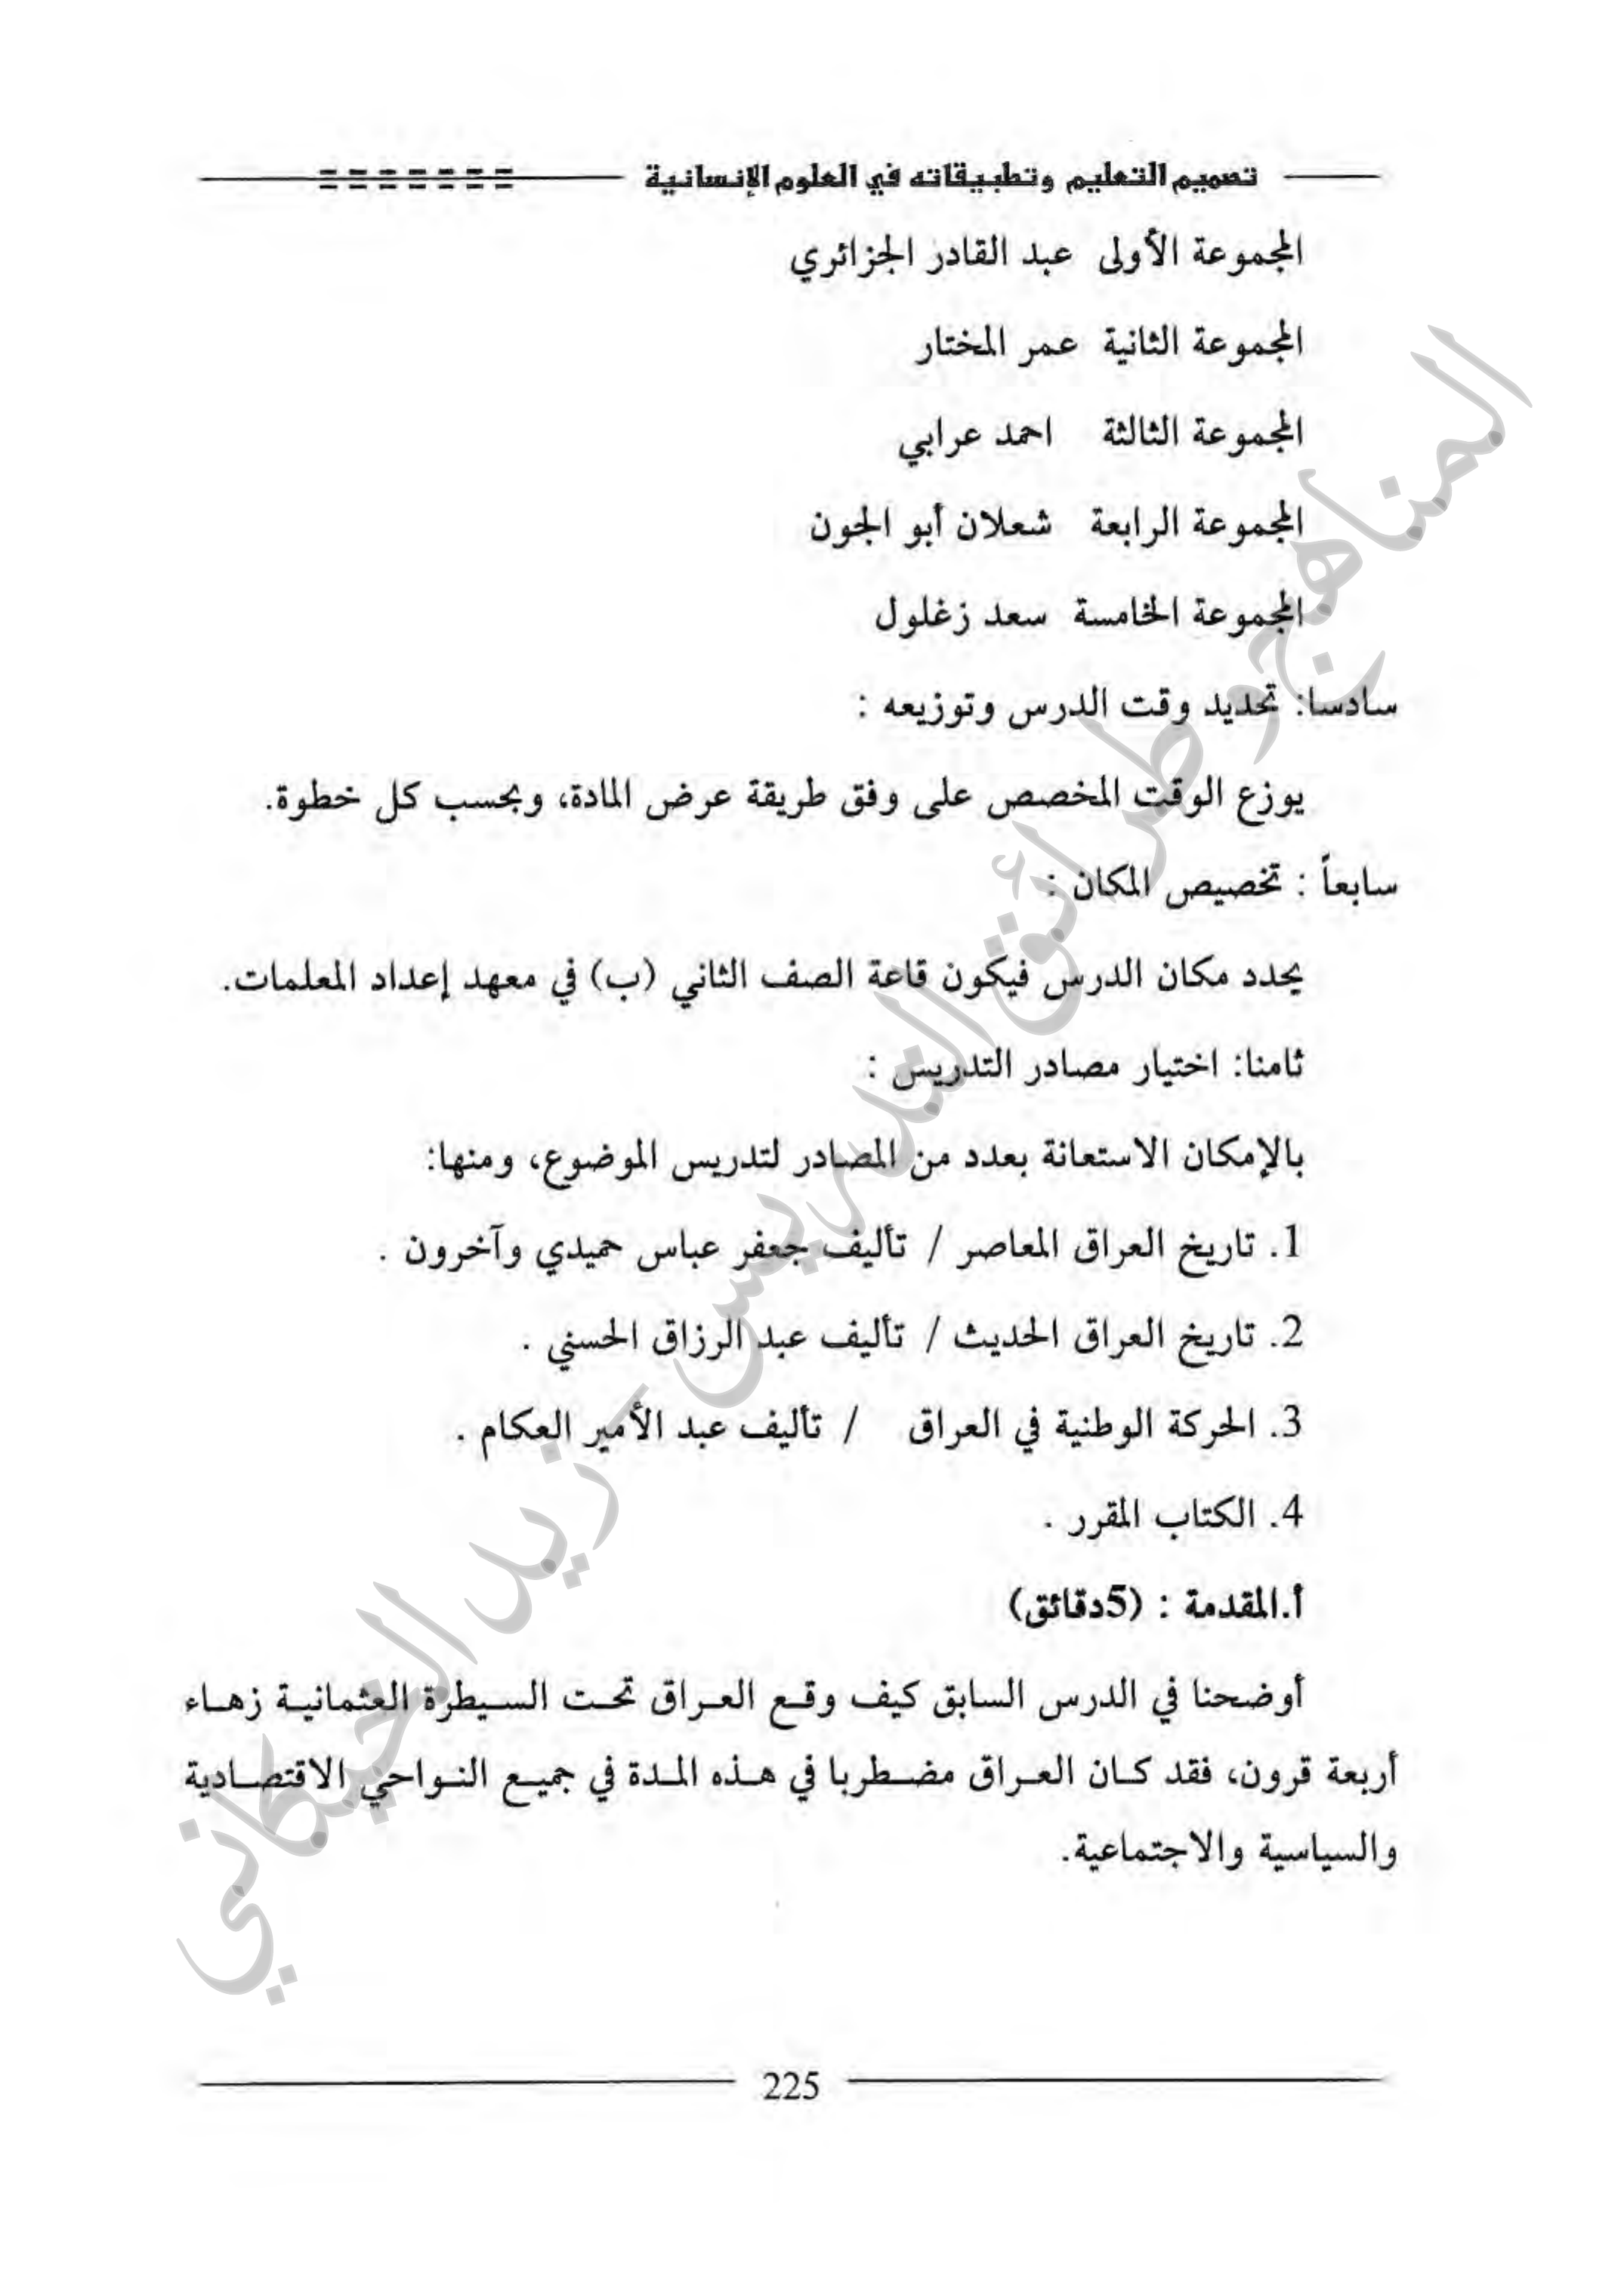 تصميم التعليم وتطبيقاته في العلوم الإنسانية
المجموعة الأولى عبد القادر الجزائري
المجموعة الثانية عمر المختار
المجموعة الثالثة احمد عرابي
المجموعة الرابعة شعلان أبو الجون
المجموعة الخامسة سعد زغلول
سادسا: تحديد وقت الدرس وتوزيعه :
يوزع الوقت المخصص على وفق طريقة عرض المادة، وبحسب كل خطوة.
سابعاً : تخصيص المكان :
يحدد مكان الدرس فيكون قاعة الصف الثاني (ب) في معهد إعداد المعلمات.
ثامنا: اختيار مصادر التدريس :
بالإمكان الاستعانة بعدد من المصادر لتدريس الموضوع، ومنها:
1. تاريخ العراق المعاصر / تأليف جعفر عباس حميدي وآخرون .
2. تاريخ العراق الحديث / تأليف عبد الرزاق الحسني .
3. الحركة الوطنية في العراق / تأليف عبد الأمير العكام .
4. الكتاب المقرر .
أ.المقدمة : (5دقائق)
أوضحنا في الدرس السابق كيف وقع العراق تحت السيطرة العثمانية زهاء
أربعة قرون، فقد كان العراق مضطربا في هذه المدة في جميع النواحي الاقتصادية
والسياسية والاجتماعية.
225
المناهج وطرائق التدريس - زيد الخيكاني